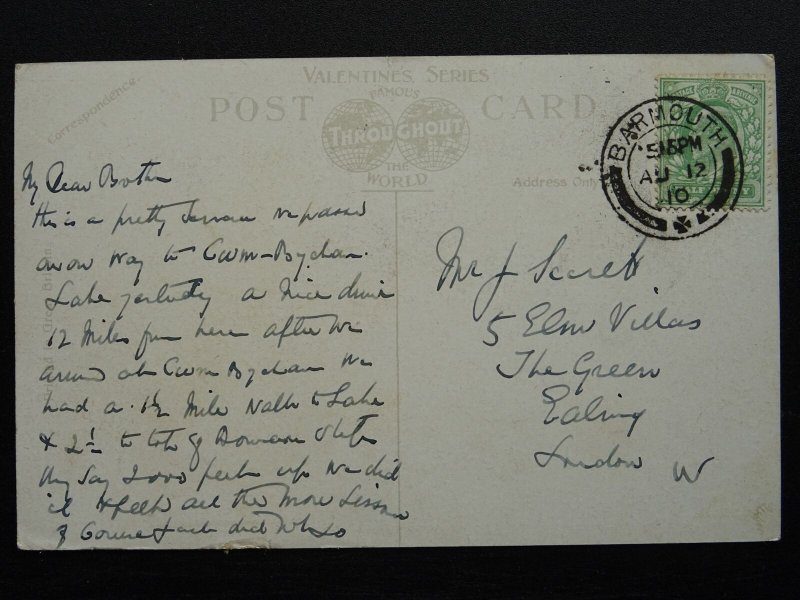 VALENTINES SERIES
FAMOUS
POST CARD
THROUGHOUT
THE
WORLD
Correspondence.
Address Only
BARMOUTH
5.15PM
AU 12
10
My Dear Brother
this is a pretty Terrace we passed
on our way to Cwm-Bychan
Lake yesterday a nice drive
12 Miles from here after we
arrived at Cwm Bychan we
had a 1½ Mile Walk to Lake
& 2½ to top of Roman Steps
they say 2000 feet up we did
it & feel all the more
of course & all did
Mr J Secrett
5 Elm Villas
The Green
Ealing
London W